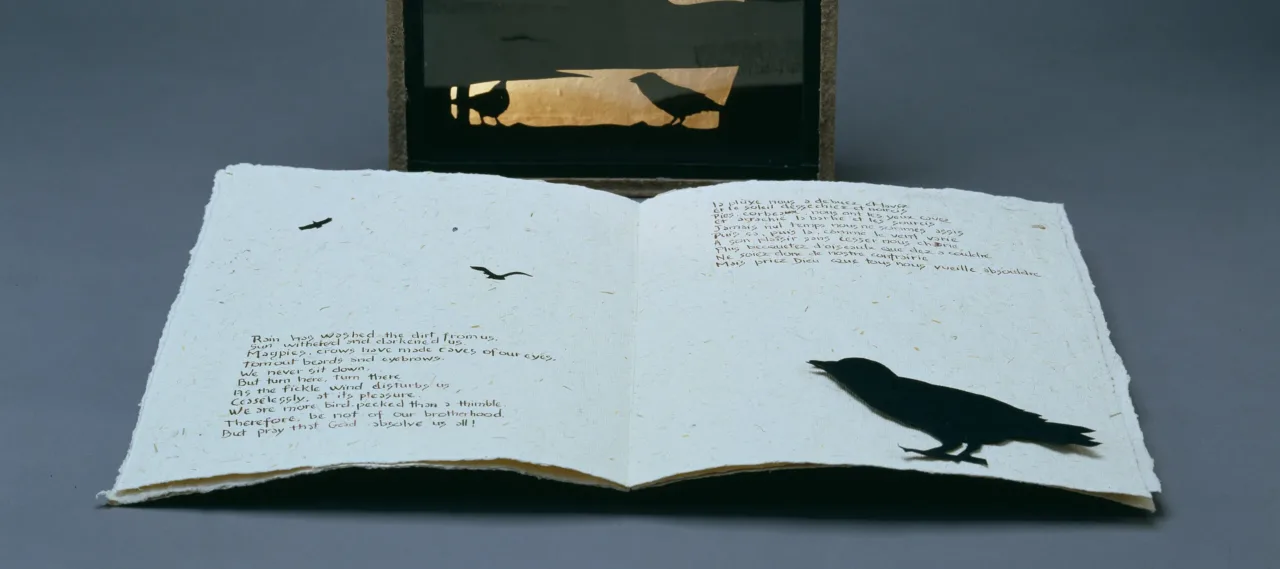 Rain has washed the dirt from us,
Sun withered and darkened us.
Magpies, crows have made caves of our eyes,
Torn out beards and eyebrows.
We never sit down,
But turn here, turn there
As the fickle wind disturbs us
Ceaselessly, at its pleasure.
We are more bird-pecked than a thimble.
Therefore, be not of our brotherhood.
But pray that God absolve us all!
la pluye nous a debuez et lavez
et le soleil dessechiez et noircis
Pies, corbeaux, nous ont les yeux cavez
et arrachie la barbe et les sourcis
Jamais nul temps nous ne sommes assis
Puis ca, puis la, comme le vent varie
A son plaisir sans cesser nous charie
Plus becquetez d'oiseaulx que dez a couldre.
Ne soiez donc de nostre confrairie
Mais priez Dieu que tous nous vueille absouldre